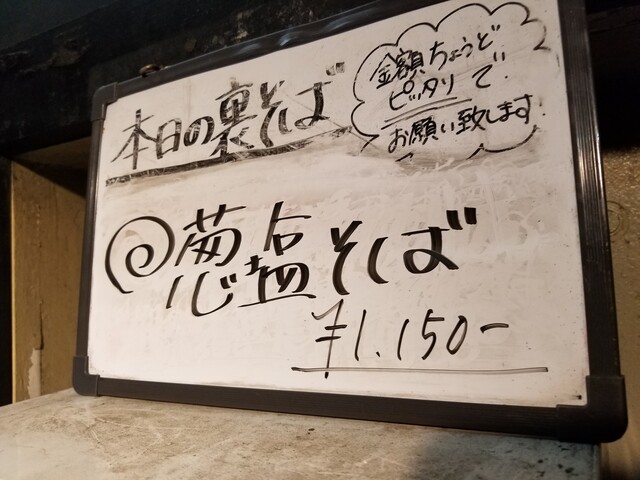 本日の裏そば
金額ちょうど
ピッタリで
お願い致します
葱塩そば
¥1.150-